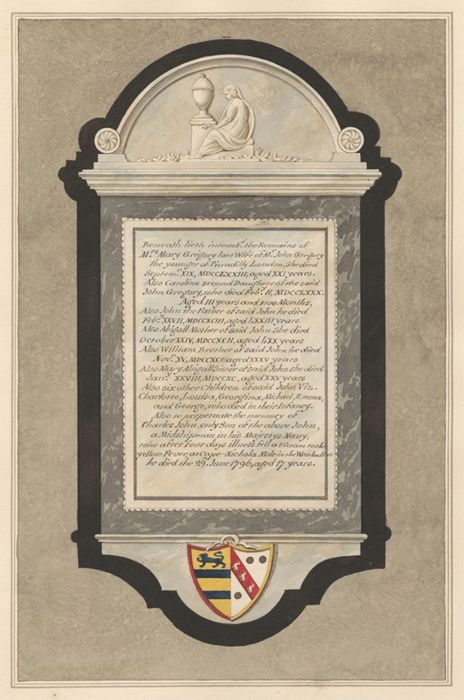 Beneath lieth intomb'd the Remains of
Mrs Mary Gregory late Wife of Mr John Gregory
the younger of Piccadilly London, She died
Septemr. XIX, MDCCLXXXIII, aged XXI years.
Also Caroline second Daughter of the said
John Gregory, who died Feby. II, MDCCLXXX.
Aged III years and two Months,
Also John the Father of said John he died
Feby. XXVII, MDCCXCIII, aged LXXIII years
Also Abigall Mother of said John She died
October XXIV, MDCCXCII, aged LXX years
Also William Brother of said John, he died
Novr. XV, MDCCXCII aged XXXV years
Also Mary Abigall Sister of said John She died
Jany. XXVIII, MDCCXC, aged XXV years
Also six other Children of said John Viz.
Charlotte, Louisa, Georgina, Michael, Emma,
and George, who died in their Infancy.
Also to perpetuate the memory of
Charles John, only Son of the above John,
a Midshipman in his Majestys Navy,
who after four days illness fell a Victim to the
yellow Fever, at Cape-Nichola Mole in the West Indies
he died the 29, June 1796, aged 17 years.